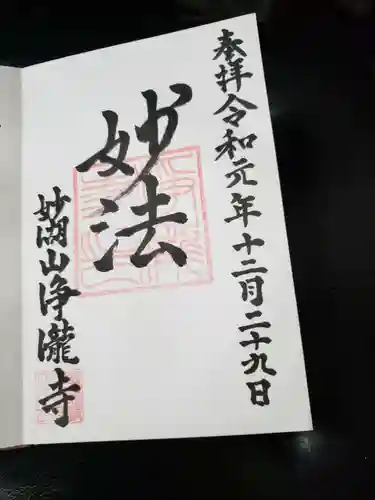 奉拝 令和元年十二月二十九日
妙法
妙湖山 浄瀧寺